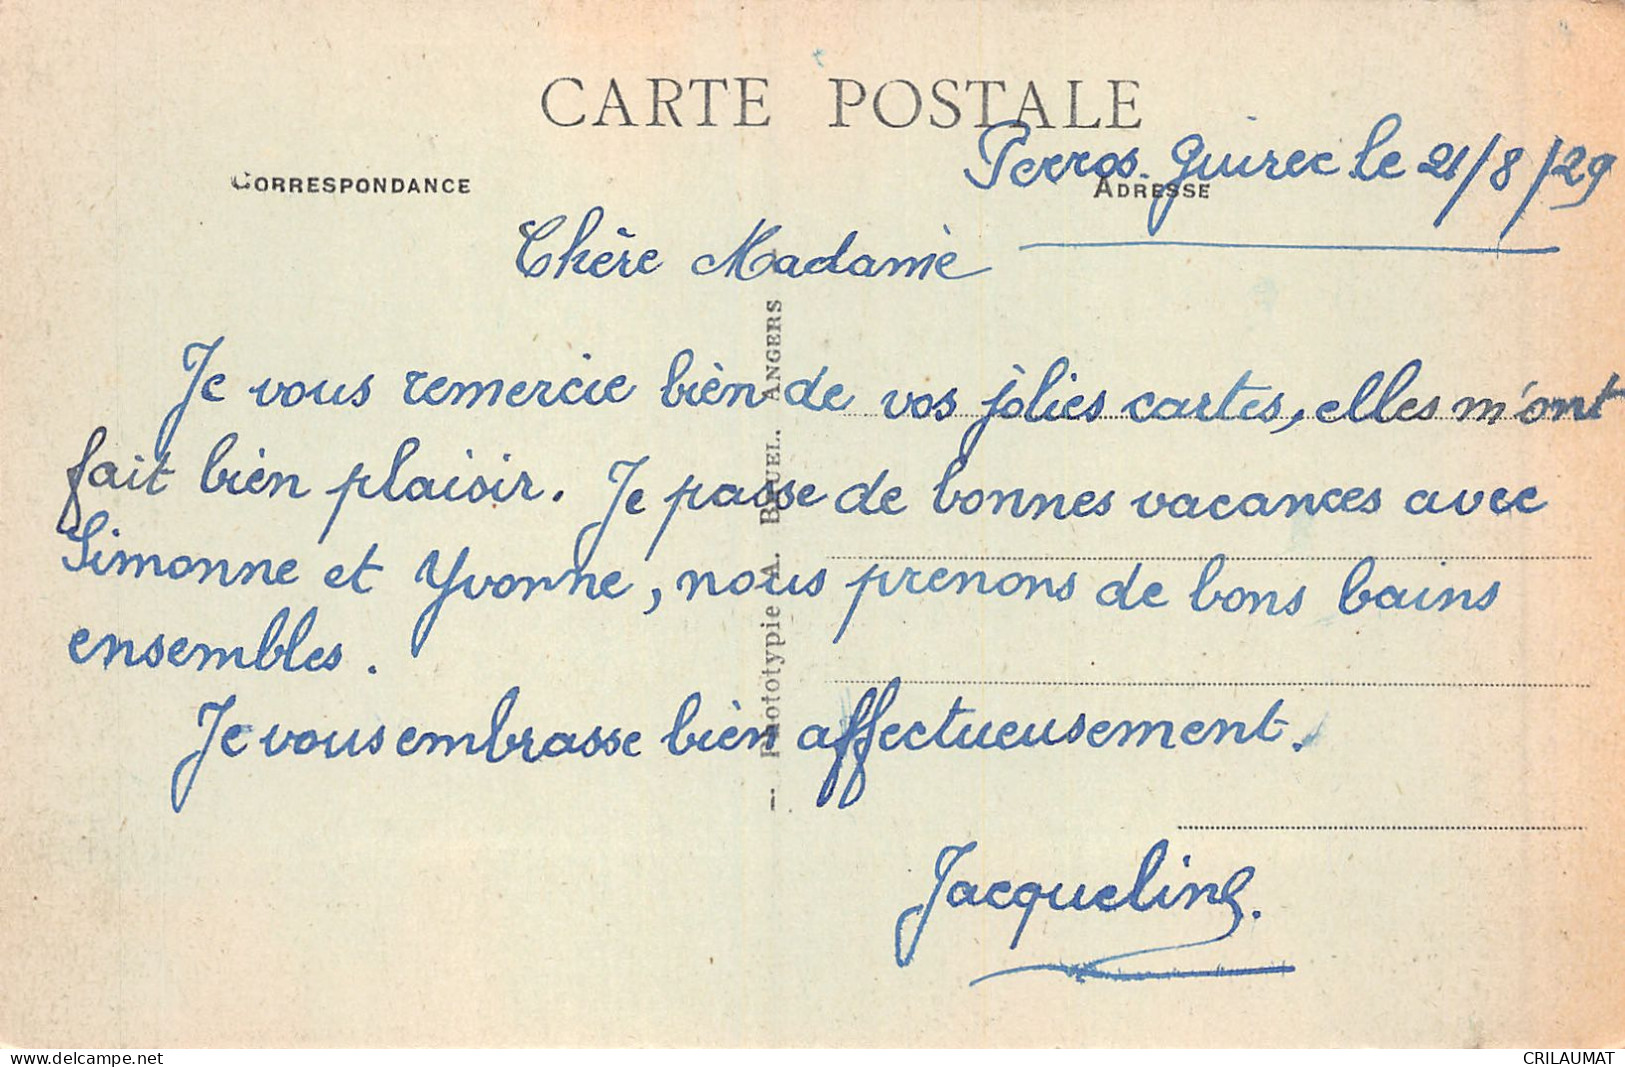 CARTE POSTALE
Perros-Guirec le 21/8/29
CORRESPONDANCE
ADRESSE
Chère Madame
Je vous remercie bien de vos jolies cartes, elles m'ont
fait bien plaisir. Je passe de bonnes vacances avec
Simonne et Yvonne, nous prenons de bons bains
ensembles.
Je vous embrasse bien affectueusement.
Jacqueline.
— Phototypie A. BRUEL. ANGERS
www.delcampe.net
CRILAUMAT